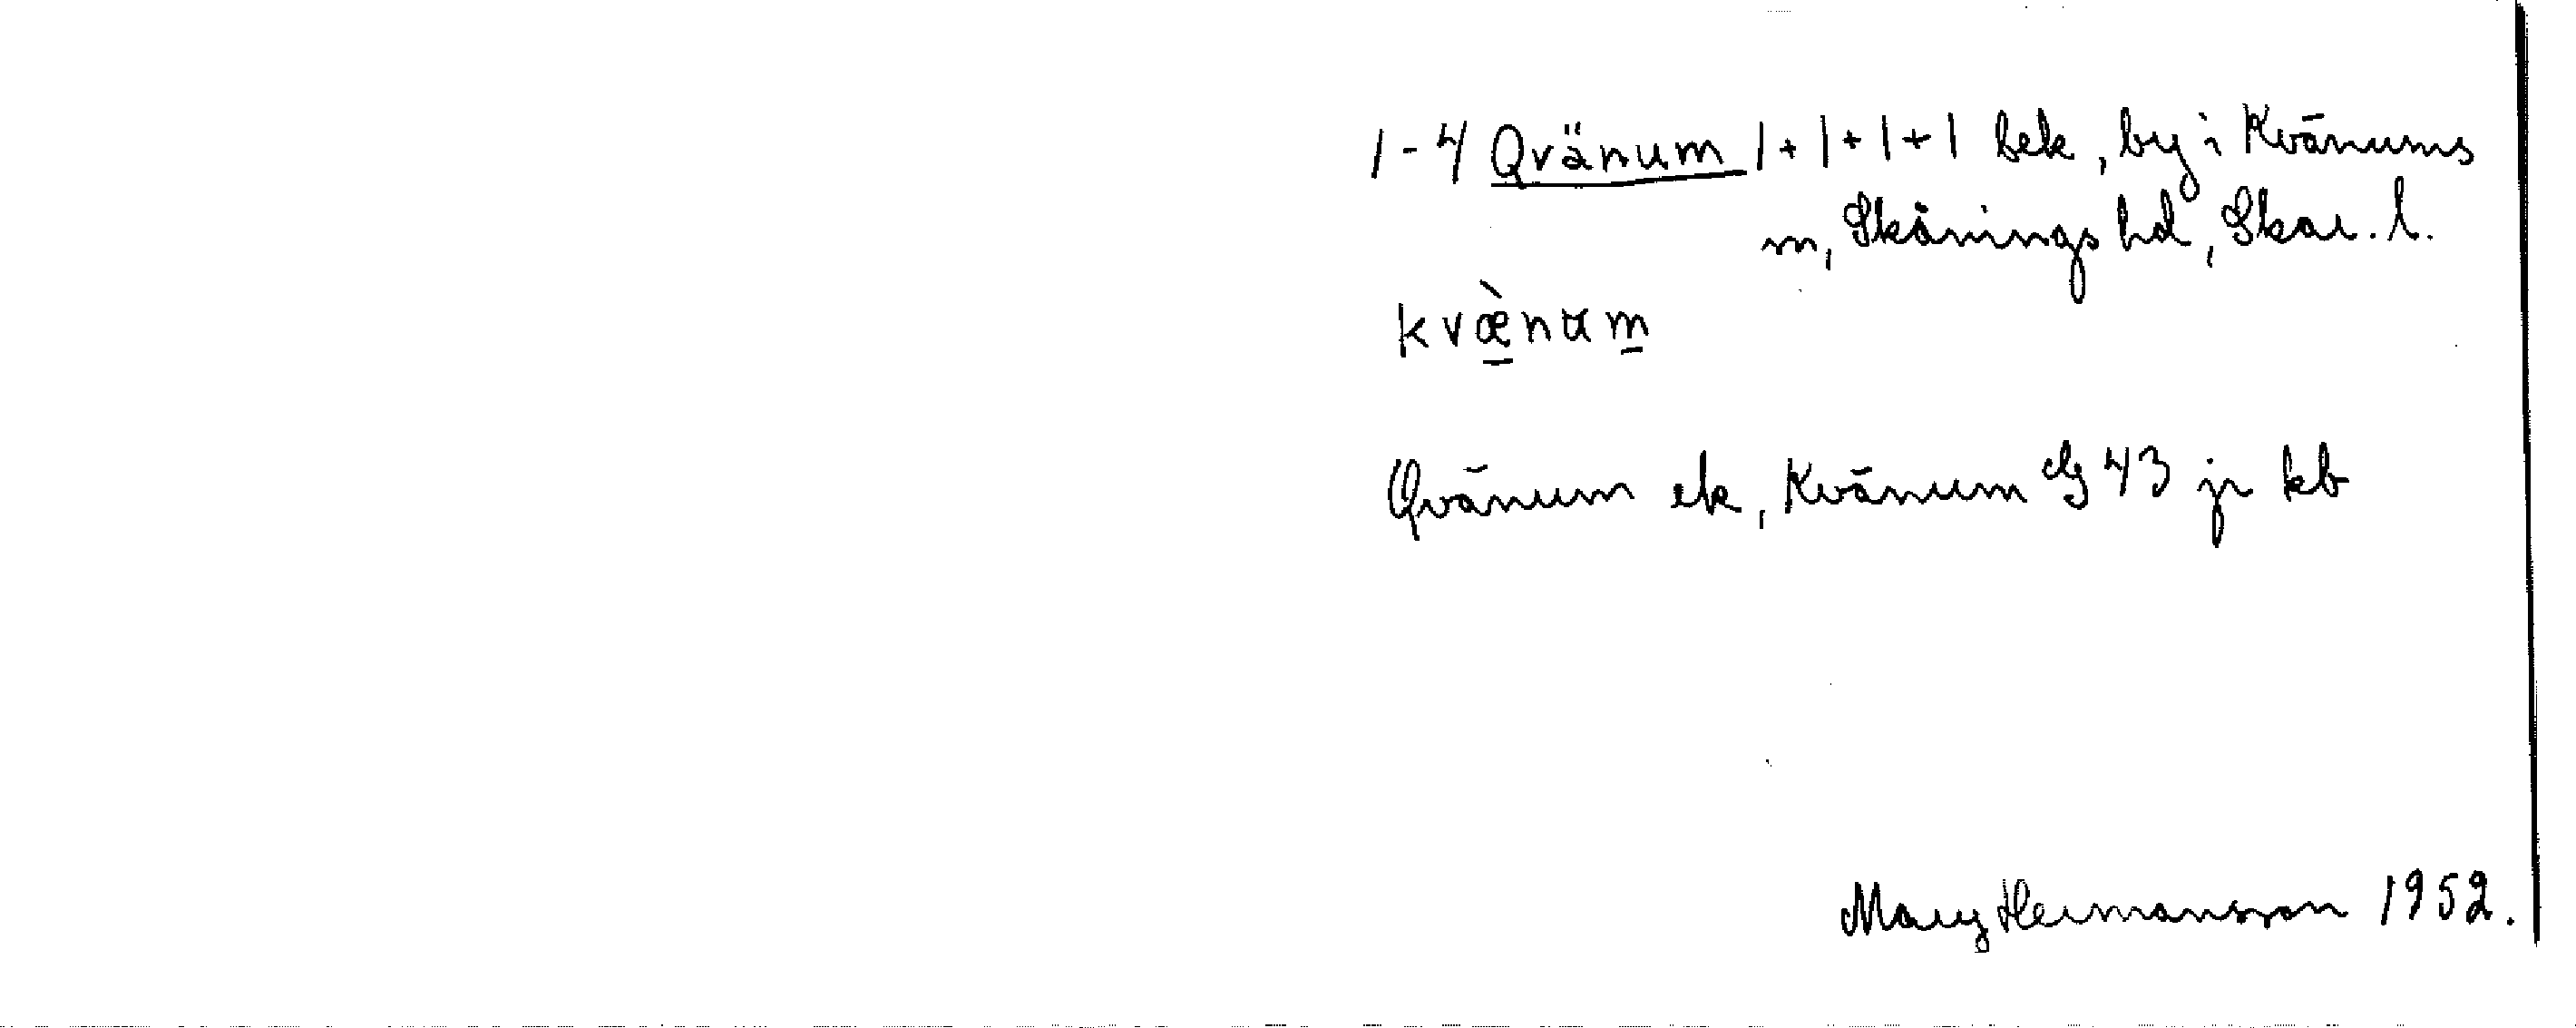 1-4 Qvänum 1+1+1+1 bek, by i Kvänums
m, Skånings hd, Skar. l.
kvæ̀num
Qvänum ek, Kvänum EG 43 jr kb
Mary Hermansson 1952.